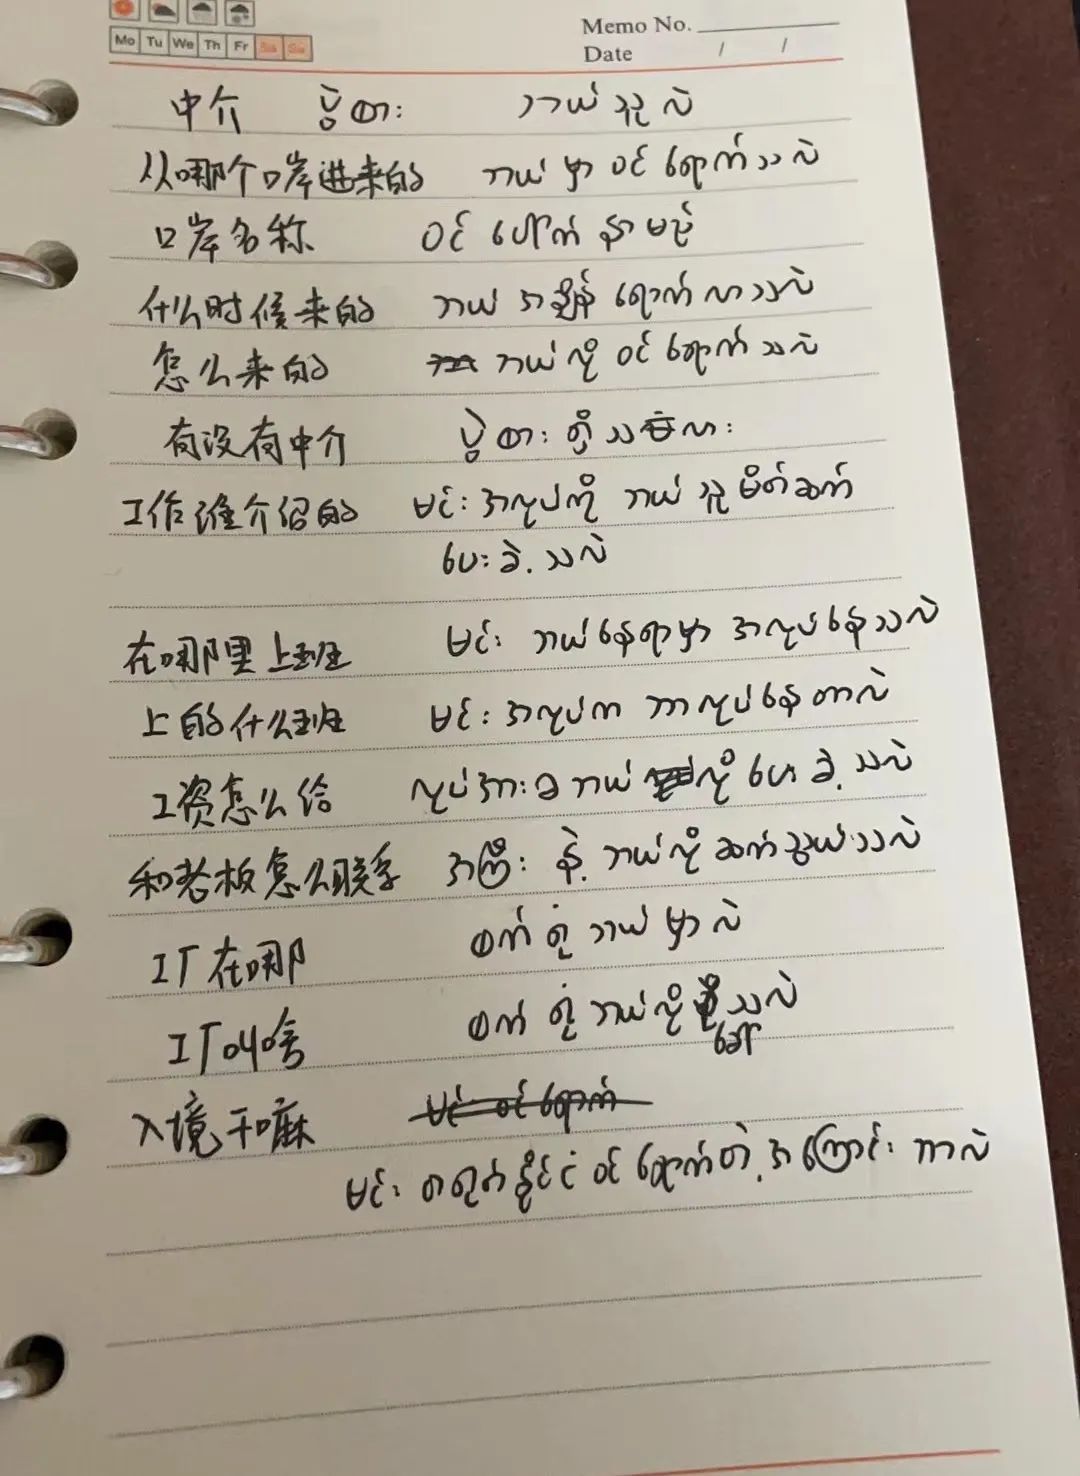 Memo No.
Mo Tu We Th Fr Sa Su
Date / /
中介 ပွဲစား ဘယ်သူလဲ
从哪个口岸进来的 ဘယ်မှာ ဝင်ရောက်သလဲ
口岸名称 ဝင်ပေါက် နာမည်
什么时候来的 ဘယ်အချိန် ရောက်လာသလဲ
怎么来的 ဘယ်လို ဝင်ရောက်သလဲ
有没有中介 ပွဲစား
工作谁介绍的 မင်း အလုပ်ကို ဘယ်သူ မိတ်ဆက်
ပေးခဲ့သလဲ
在哪里上班 မင်း ဘယ်နေရာမှာ အလုပ်နေသလဲ
上的什么班 မင်း အလုပ်က ဘာလုပ်နေတာလဲ
工资怎么给 လုပ်အားခ ဘယ်လို ပေးခဲ့သလဲ
和老板怎么联系 အကြီး နဲ့ ဘယ်လို ဆက်သွယ်သလဲ
工厂在哪 စက်ရုံ ဘယ်မှာလဲ
工厂叫啥 စက်ရုံ ဘယ်လို ခေါ်သလဲ
入境干嘛
မင်း တရုတ်နိုင်ငံ ဝင်ရောက်တဲ့ အကြောင်း ကာလဲ